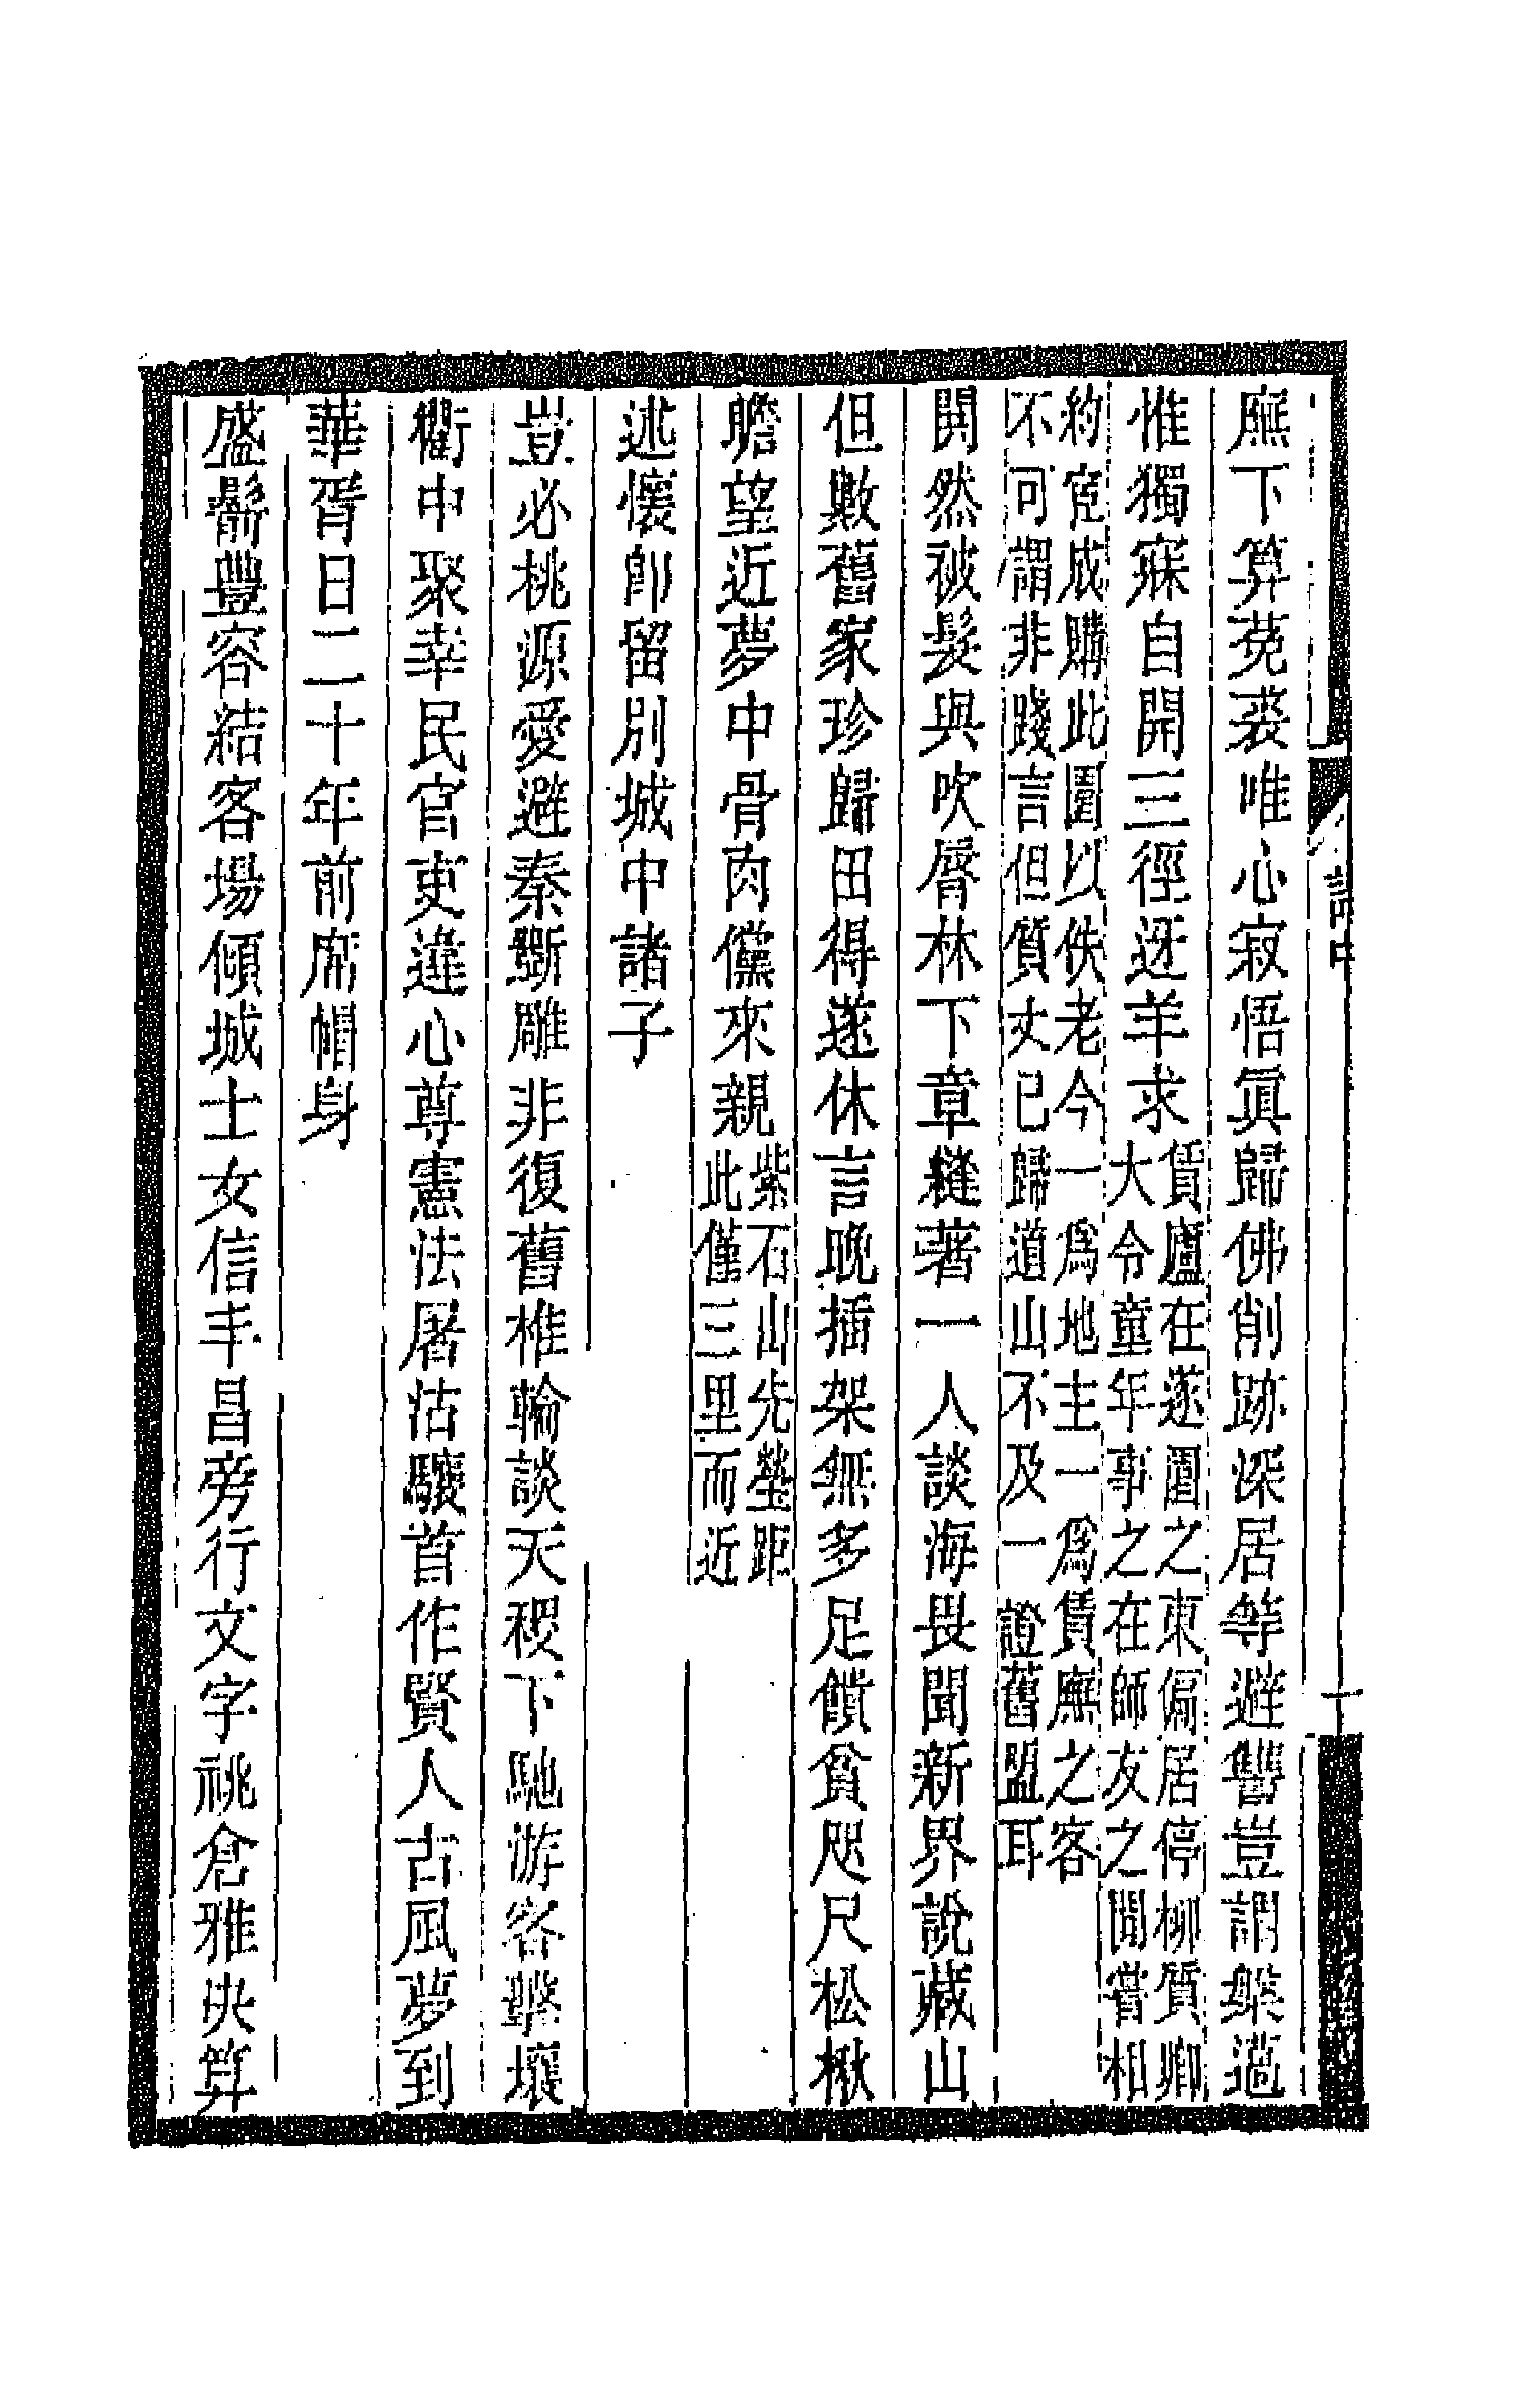 廡下算菟裘唯心寂悟眞歸佛削跡深居等避讐豈謂槃薖
惟獨寐自開三徑迓羊求
賃廬在遂園之東偏居停柳質卿
大令童年事之在師友之間嘗相
約宦成購此園以佚老今一爲地主一爲賃廡之客
不可謂非踐言但質丈已歸道山不及一證舊盟耳
閧然被髮與吹脣林下章縫著一人談海畏聞新界說藏山
但數舊家珍歸田得遂休言晚插架無多足饋貧咫尺松楸
瞻望近夢中骨肉儻來親
紫石山先塋距
此僅三里而近
述懷卽留別城中諸子
豈必桃源愛避秦斲雕非復舊椎輪談天稷下馳游客擊壤
衢中聚幸民官吏違心尊憲法屠沽驤首作賢人古風夢到
華胥日二十年前席帽身
盛鬋豐容結客場傾城士女信丰昌旁行文字祧倉雅決算
詩中
十